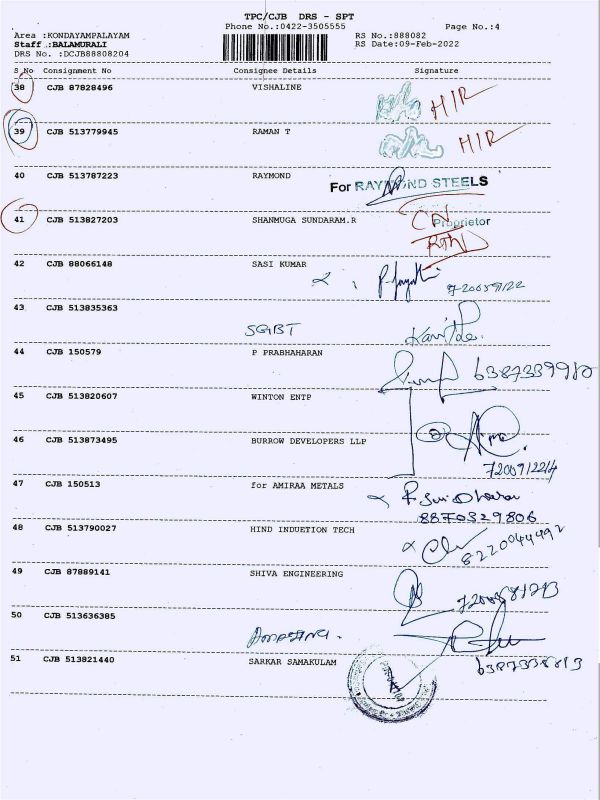 TPC/CJB DRS - SPT
Phone No.:0422-3505555 Page No.:4
Area :KONDAYAMPALAYAM RS No.:888082
Staff :BALAMURALI RS Date:09-Feb-2022
DRS No. :DCJB88808204
S_No Consignment No Consignee Details Signature
38 CJB 87828496 VISHALINE
39 CJB 513779945 RAMAN T
40 CJB 513787223 RAYMOND
For RAYMOND STEELS
41 CJB 513827203 SHANMUGA SUNDARAM.R
Proprietor
42 CJB 88066148 SASI KUMAR
43 CJB 513835363
SGBT
44 CJB 150579 P PRABHAHARAN
45 CJB 513820607 WINTON ENTP
46 CJB 513873495 BURROW DEVELOPERS LLP
47 CJB 150513 for AMIRAA METALS
8870329806
48 CJB 513790027 HIND INDUETION TECH
8220044492
49 CJB 87889141 SHIVA ENGINEERING
50 CJB 513636385
51 CJB 513821440 SARKAR SAMAKULAM